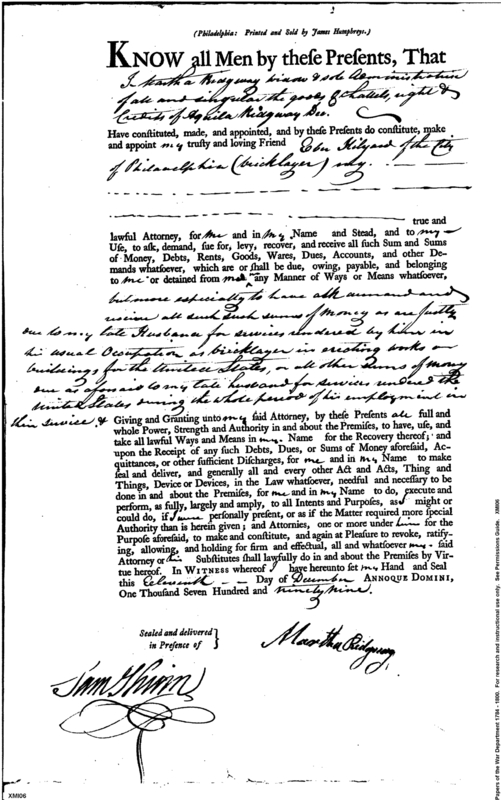 (Philadelphia: Printed and Sold by James Humphreys.)
KNOW all Men by theſe Preſents, That
I Martha Ridgway widow & sole Administratrix
of all and singular the goods & Chattels, right &
Credits of Aquila Ridgway Dec.
Have conſtituted, made, and appointed, and by theſe Preſents do conſtitute, make
and appoint my truſty and loving Friend Eber Hilyard of the City
of Philadelphia (bricklayer) my
true and
lawful Attorney, for me and in my Name and Stead, and to my
Uſe, to aſk, demand, ſue for, levy, recover, and receive all ſuch Sum and Sums
of Money, Debts, Rents, Goods, Wares, Dues, Accounts, and other De-
mands whatſoever, which are or ſhall be due, owing, payable, and belonging
to me or detained from me any Manner of Ways or Means whatſoever,
but more especially to have ask demand and
receive all such such sums of Money as are justly
due to my late Husband for services rendered by him in
his usual Occupation as bricklayer in erecting works or
buildings for the United States, or all other Sums of money
due as aforesaid to my late husband for services rendered the
United States during the whole period of his employment in
their service & Giving and Granting unto my ſaid Attorney, by theſe Preſents all full and
whole Power, Strength and Authority in and about the Premiſes, to have, uſe, and
take all lawful Ways and Means in my Name for the Recovery thereof; and
upon the Receipt of any ſuch Debts, Dues, or Sums of Money aforeſaid, Ac-
quittances, or other ſufficient Diſcharges, for me and in my Name to make
ſeal and deliver, and generally all and every other Act and Acts, Thing and
Things, Device or Devices, in the Law whatſoever, needful and neceſſary to be
done in and about the Premiſes, for me and in my Name to do, execute and
perform, as fully, largely and amply, to all Intents and Purpoſes, as I might or
could do, if I were perſonally preſent, or as if the Matter required more ſpecial
Authority than is herein given; and Attornies, one or more under him for the
Purpoſe aforeſaid, to make and conſtitute, and again at Pleaſure to revoke, ratify-
ing, allowing, and holding for firm and effectual, all and whatſoever my ſaid
Attorney or his Subſtitutes ſhall lawfully do in and about the Premiſes by Vir-
tue hereof. IN WITNESS whereof I have hereunto ſet my Hand and Seal
this Eleventh Day of December ANNOQUE DOMINI,
One Thouſand Seven Hundred and ninety nine.
Sealed and delivered
in Preſence of
Martha Ridgway
XMI06
Papers of the War Department 1784 - 1800. For research and instructional use only. See Permissions Guide. XMI06